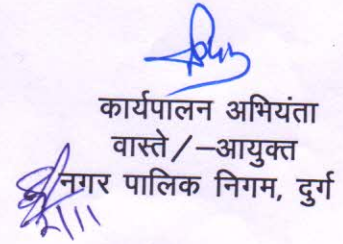 कार्यपालन अभियंता
वास्ते/–आयुक्त
नगर पालिक निगम, दुर्ग